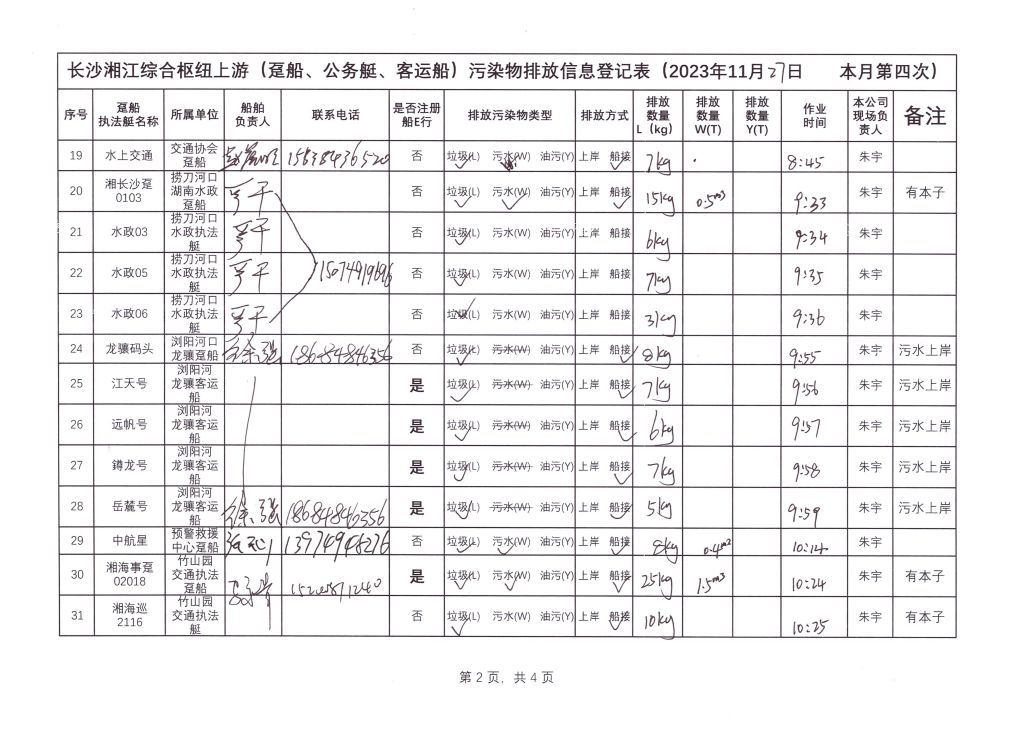 长沙湘江综合枢纽上游（趸船、公务艇、客运船）污染物排放信息登记表（2023年11月27日 本月第四次）
序号 趸船执法艇名称 所属单位 船舶负责人 联系电话 是否注册船E行 排放污染物类型 排放方式 排放数量L（kg） 排放数量W(T) 排放数量Y(T) 作业时间 本公司现场负责人 备注
19 水上交通 交通协会趸船 否 垃圾(L) 污水(W) 油污(Y) 上岸 船接 7kg 8:45 朱宇
20 湘长沙趸0103 捞刀河口湖南水政趸船 否 垃圾(L) 污水(W) 油污(Y) 上岸 船接 15kg 0.5m3 9:33 朱宇 有本子
21 水政03 捞刀河口水政执法艇 否 垃圾(L) 污水(W) 油污(Y) 上岸 船接 6kg 9:34 朱宇
22 水政05 捞刀河口水政执法艇 否 垃圾(L) 污水(W) 油污(Y) 上岸 船接 7kg 9:35 朱宇
23 水政06 捞刀河口水政执法艇 否 垃圾(L) 污水(W) 油污(Y) 上岸 船接 3kg 9:36 朱宇
24 龙骧码头 浏阳河口龙骧趸船 18684846356 否 垃圾(L) 污水(W) 油污(Y) 上岸 船接 8kg 9:55 朱宇 污水上岸
25 江天号 浏阳河龙骧客运船 是 垃圾(L) 污水(W) 油污(Y) 上岸 船接 7kg 9:56 朱宇 污水上岸
26 远帆号 浏阳河龙骧客运船 是 垃圾(L) 污水(W) 油污(Y) 上岸 船接 6kg 9:57 朱宇 污水上岸
27 鐏龙号 浏阳河龙骧客运船 是 垃圾(L) 污水(W) 油污(Y) 上岸 船接 7kg 9:58 朱宇 污水上岸
28 岳麓号 浏阳河龙骧客运船 徐强 18684846356 是 垃圾(L) 污水(W) 油污(Y) 上岸 船接 5kg 9:59 朱宇 污水上岸
29 中航星 预警救援中心趸船 13974948276 否 垃圾(L) 污水(W) 油污(Y) 上岸 船接 8kg 10:14 朱宇
30 湘海事趸02018 竹山园交通执法趸船 是 垃圾(L) 污水(W) 油污(Y) 上岸 船接 25kg 1.5m3 10:24 朱宇 有本子
31 湘海巡2116 竹山园交通执法艇 否 垃圾(L) 污水(W) 油污(Y) 上岸 船接 10kg 10:25 朱宇 有本子
第 2 页，共 4 页